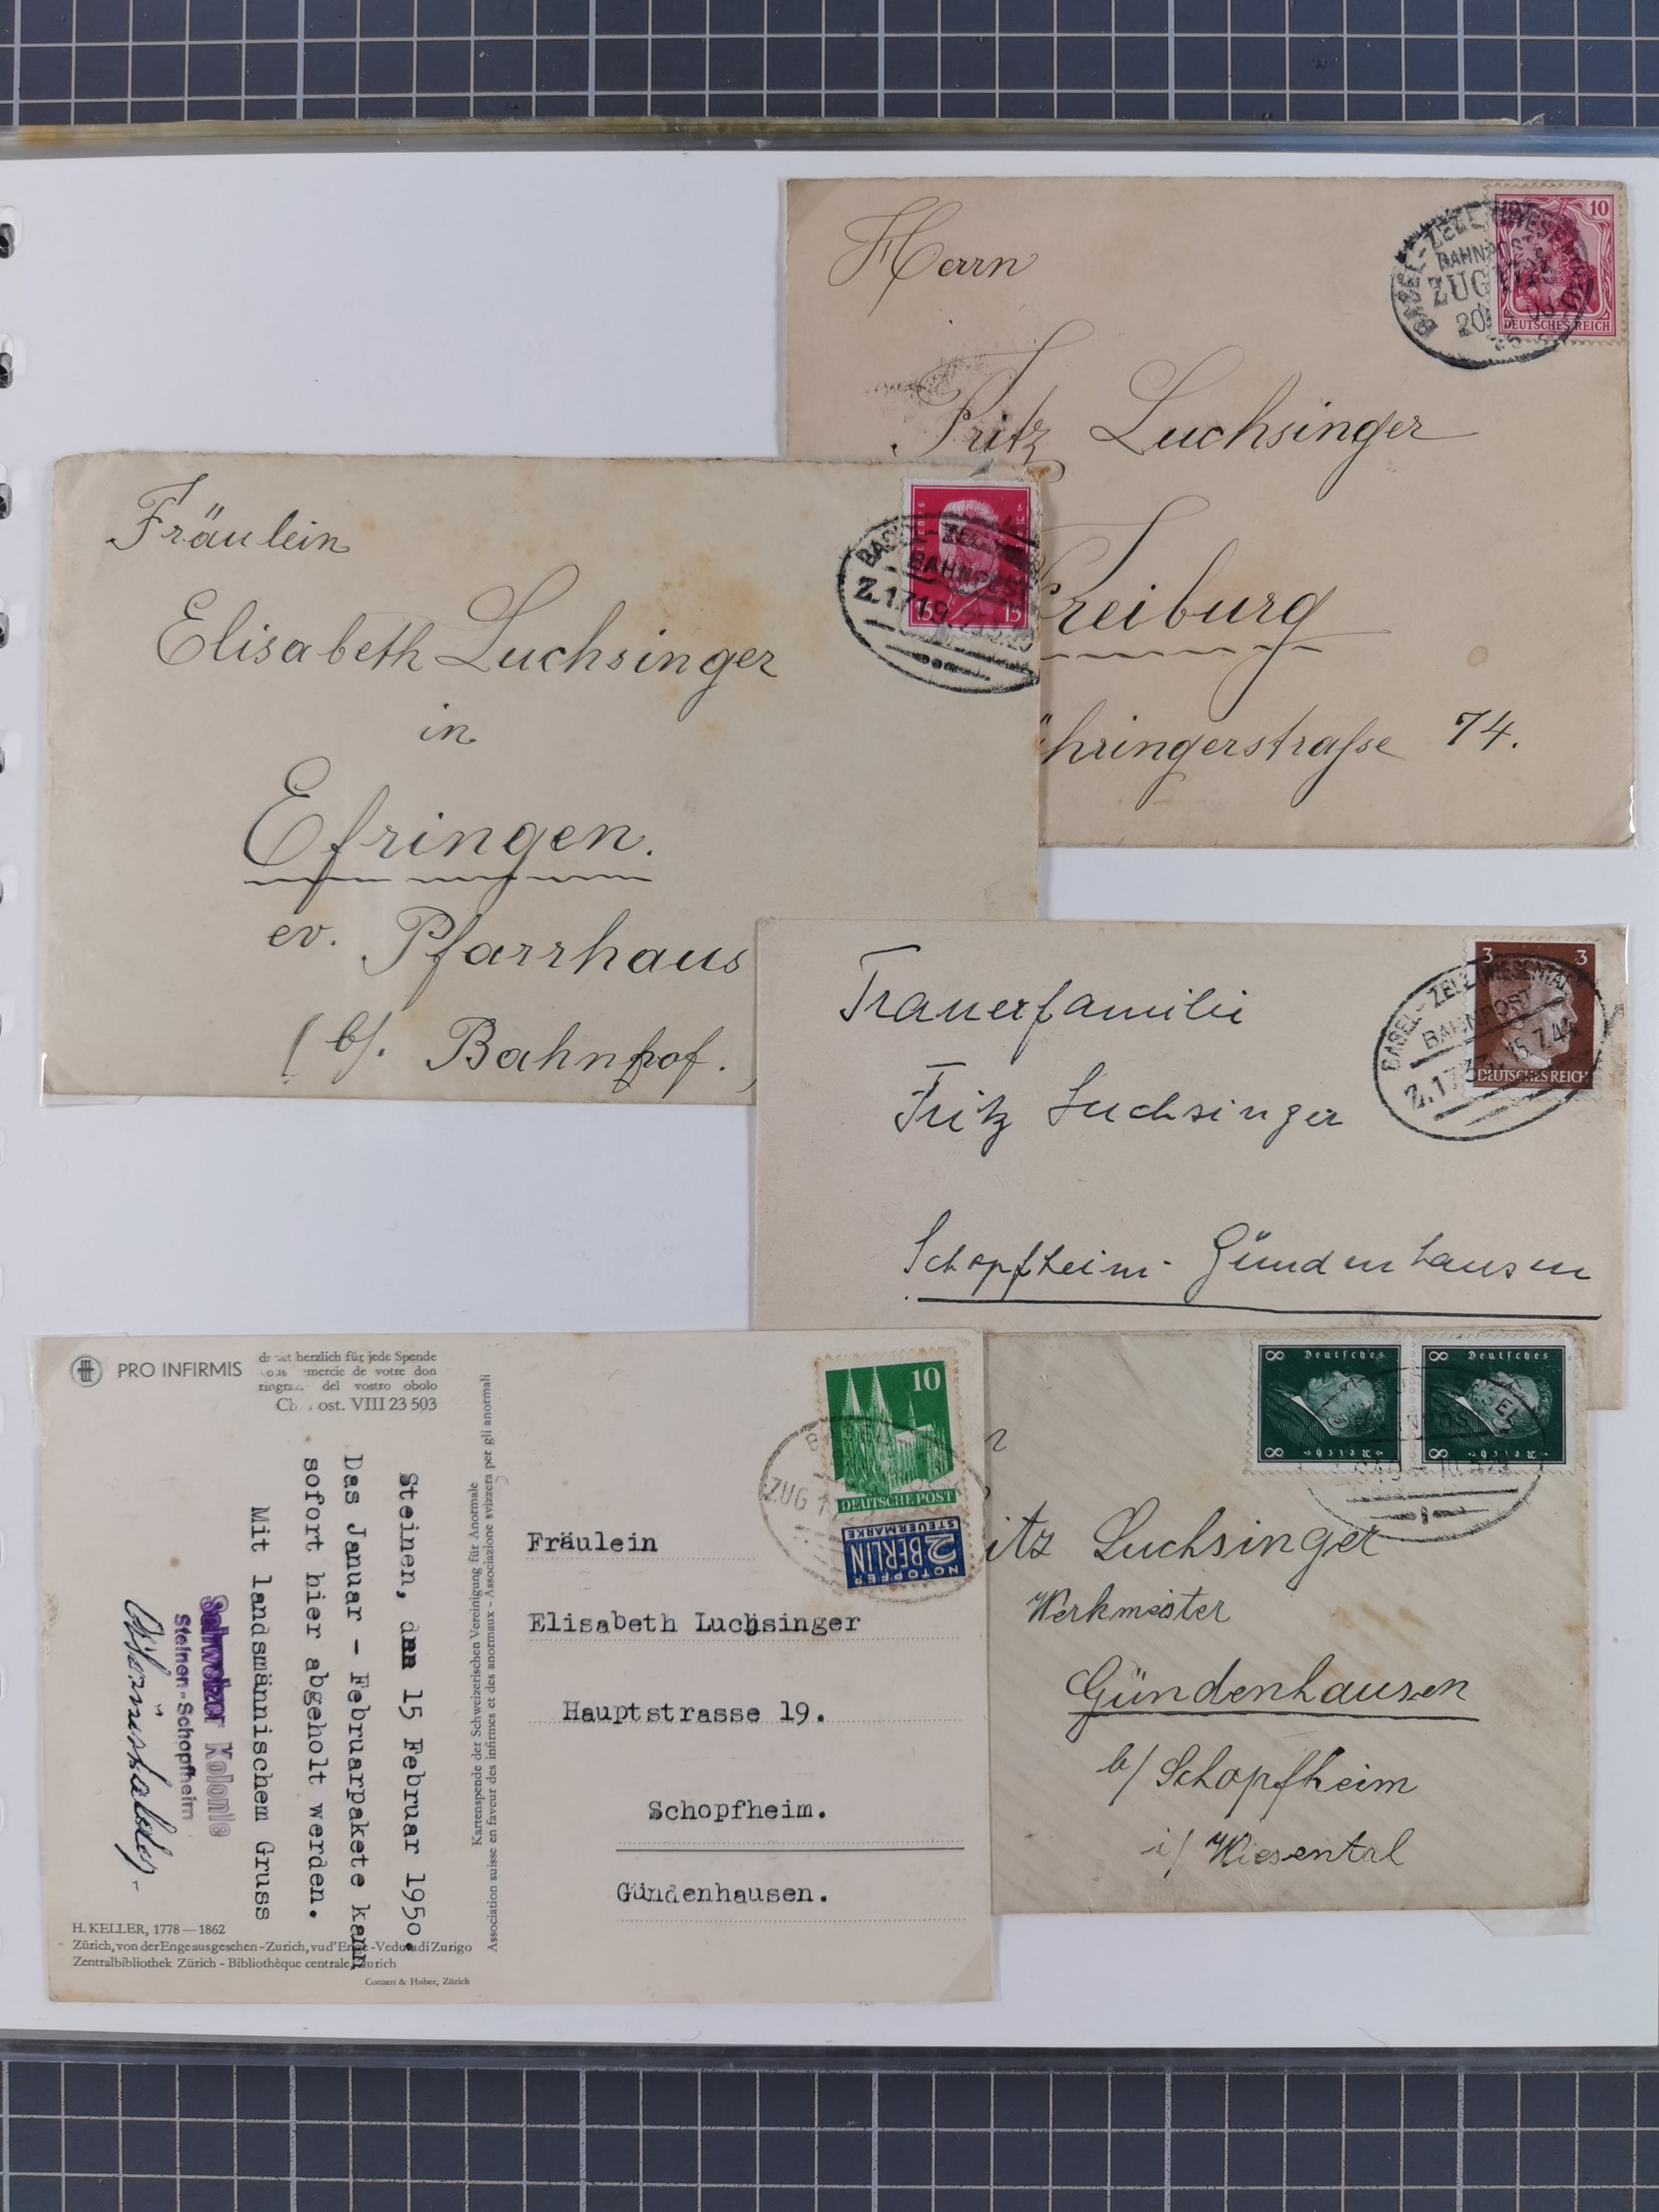 Herrn
Fritz Luchsinger
Freiburg
ähringerstraſse 74.
BASEL-ZELL (WIESENTHAL)
BAHNPOST
ZUG
20
10
10
DEUTSCHES REICH
Fräulein
Elisabeth Luchsinger
in
Efringen.
ev. Pfarrhaus
(b/. Bahnhof.)
BASEL-ZELL
BAHNPOST
Z.1719
15
15
Trauerfamilie
Fritz Luchsinger
Schopfheim-Gündenhausen
BASEL-ZELL (WIESENTAL)
BAHNPOST
Z.1733 15.7.44
3
3
DEUTSCHES REICH
itz Luchsinger
Werkmeister
Gündenhausen
b/ Schopfheim
i/ Wiesental
8 Deutsches
8 Reich
8 Deutsches
8 Reich
BASEL
BAHNPOST
PRO INFIRMIS
dankt herzlich für jede Spende
vous remercie de votre don
del vostro obolo
VIII 23 503
Steinen, den 15 Februar 1950.
Das Januar - Februarpakete kann
sofort hier abgeholt werden.
Mit landsmännischem Gruss
Schweizer Kolonie
Steinen-Schopfheim
Kartenspende der Schweizerischen Vereinigung für Anormale
Association suisse en faveur des infirmes et des anormaux - Associazione svizzera per gli anormali
H. KELLER, 1778—1862
Zürich, von der Enge aus gesehen - Zurich, vu d'Enge - Veduta di Zurigo
Zentralbibliothek Zürich - Bibliothèque centrale, Zurich
Conzett & Huber, Zürich
10
DEUTSCHE POST
NOTOPFER
2 BERLIN
STEUERMARKE
ZUG 1
Fräulein
Elisabeth Luchsinger
Hauptstrasse 19.
Schopfheim.
Gündenhausen.